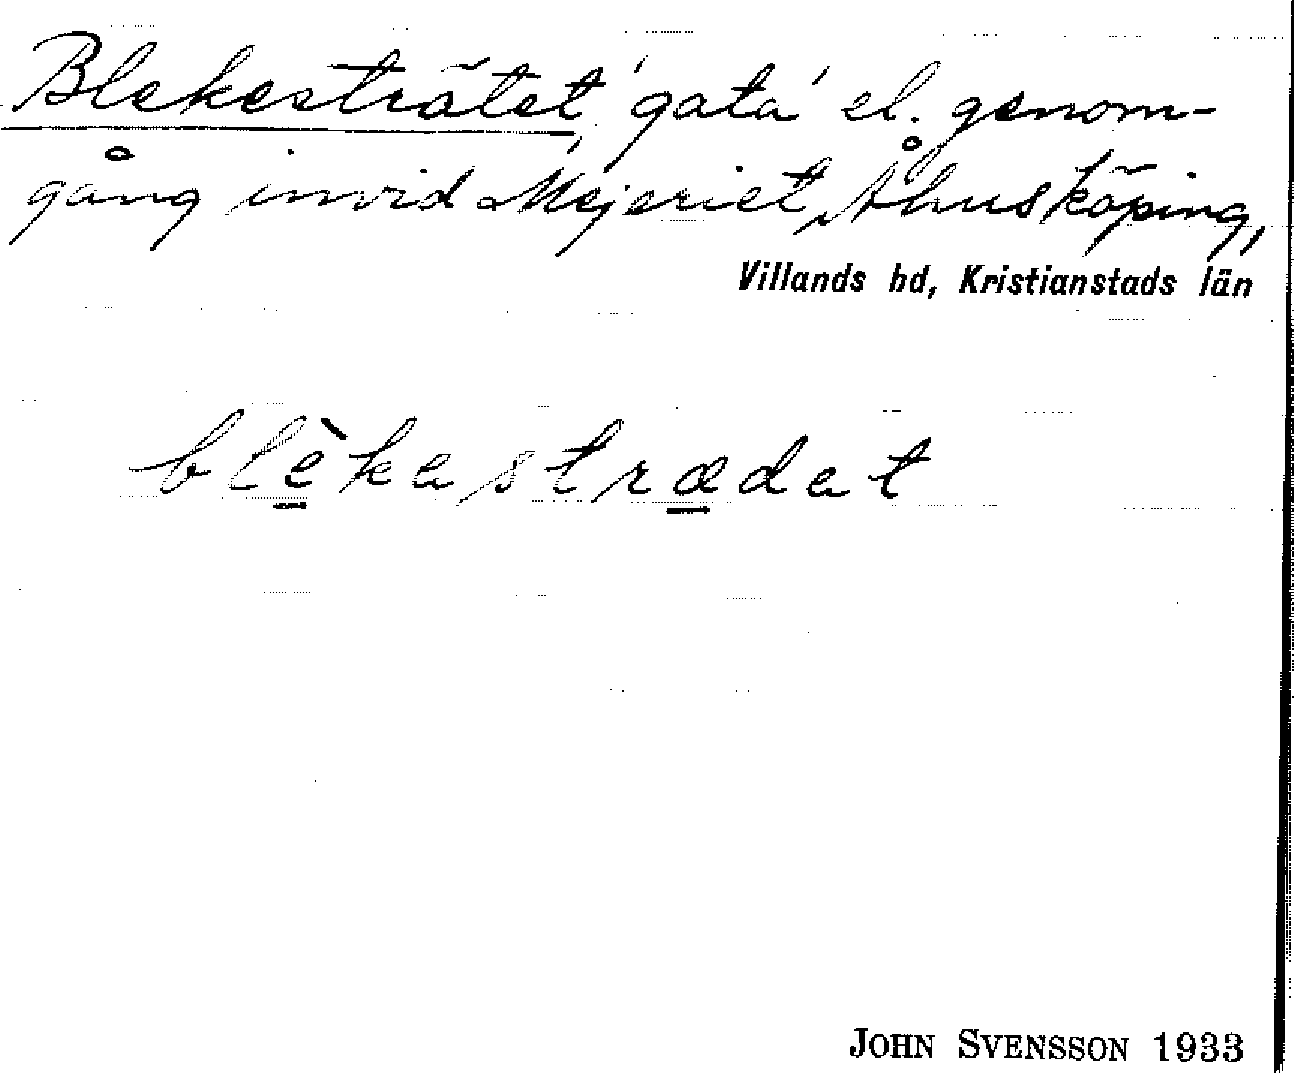 Blekesträtet 'gata' el. genom-
gång invid Mejeriet, Åhus köping,
Villands hd, Kristianstads län
blèkestrædet
JOHN SVENSSON 1933